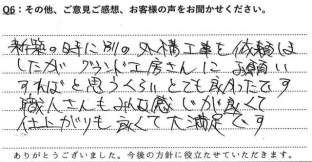 Q6：その他、ご意見ご感想、お客様の声をお聞かせください。
新築の時に別の外構工事を依頼は
したが グランド工房さんに お願い
すればと思うくらい とても良かったです
職人さんもみんな感じが良くて
仕上がりも良くて大満足です
ありがとうございました。今後の方針に役立たせていただきます。